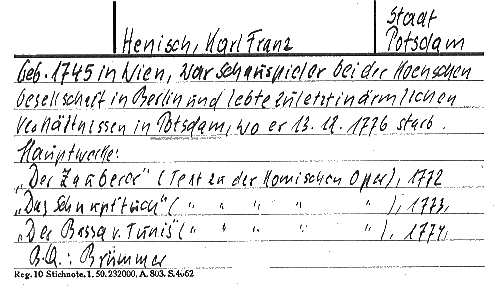 Stadt
Henisch, Karl Franz Potsdam
Geb. 1745 in Wien, war Schauspieler bei der Kochschen
Gesellschaft in Berlin und lebte zuletzt in ärmlichen
Verhältnissen in Potsdam, wo er 13. 12. 1776 starb.
Hauptwerke:
„Der Zauberer" (Text zu der Komischen Oper), 1772
„Das Schnupftuch" ( " " " " " ), 1773,
„Der Bassa v. Tunis" ( " " " " " ), 1774,
B.Q.: Brümmer
Reg. 10 Stichnote. 1. 50. 232000, A. 803. S. 4062